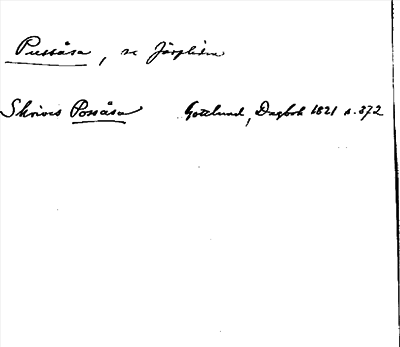 Pussåsa, se Järpliden
Skrives Possåsa Gottlund, Dagbok 1821 s. 372